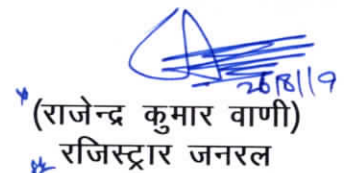 26/8/19
(राजेन्द्र कुमार वाणी)
रजिस्ट्रार जनरल